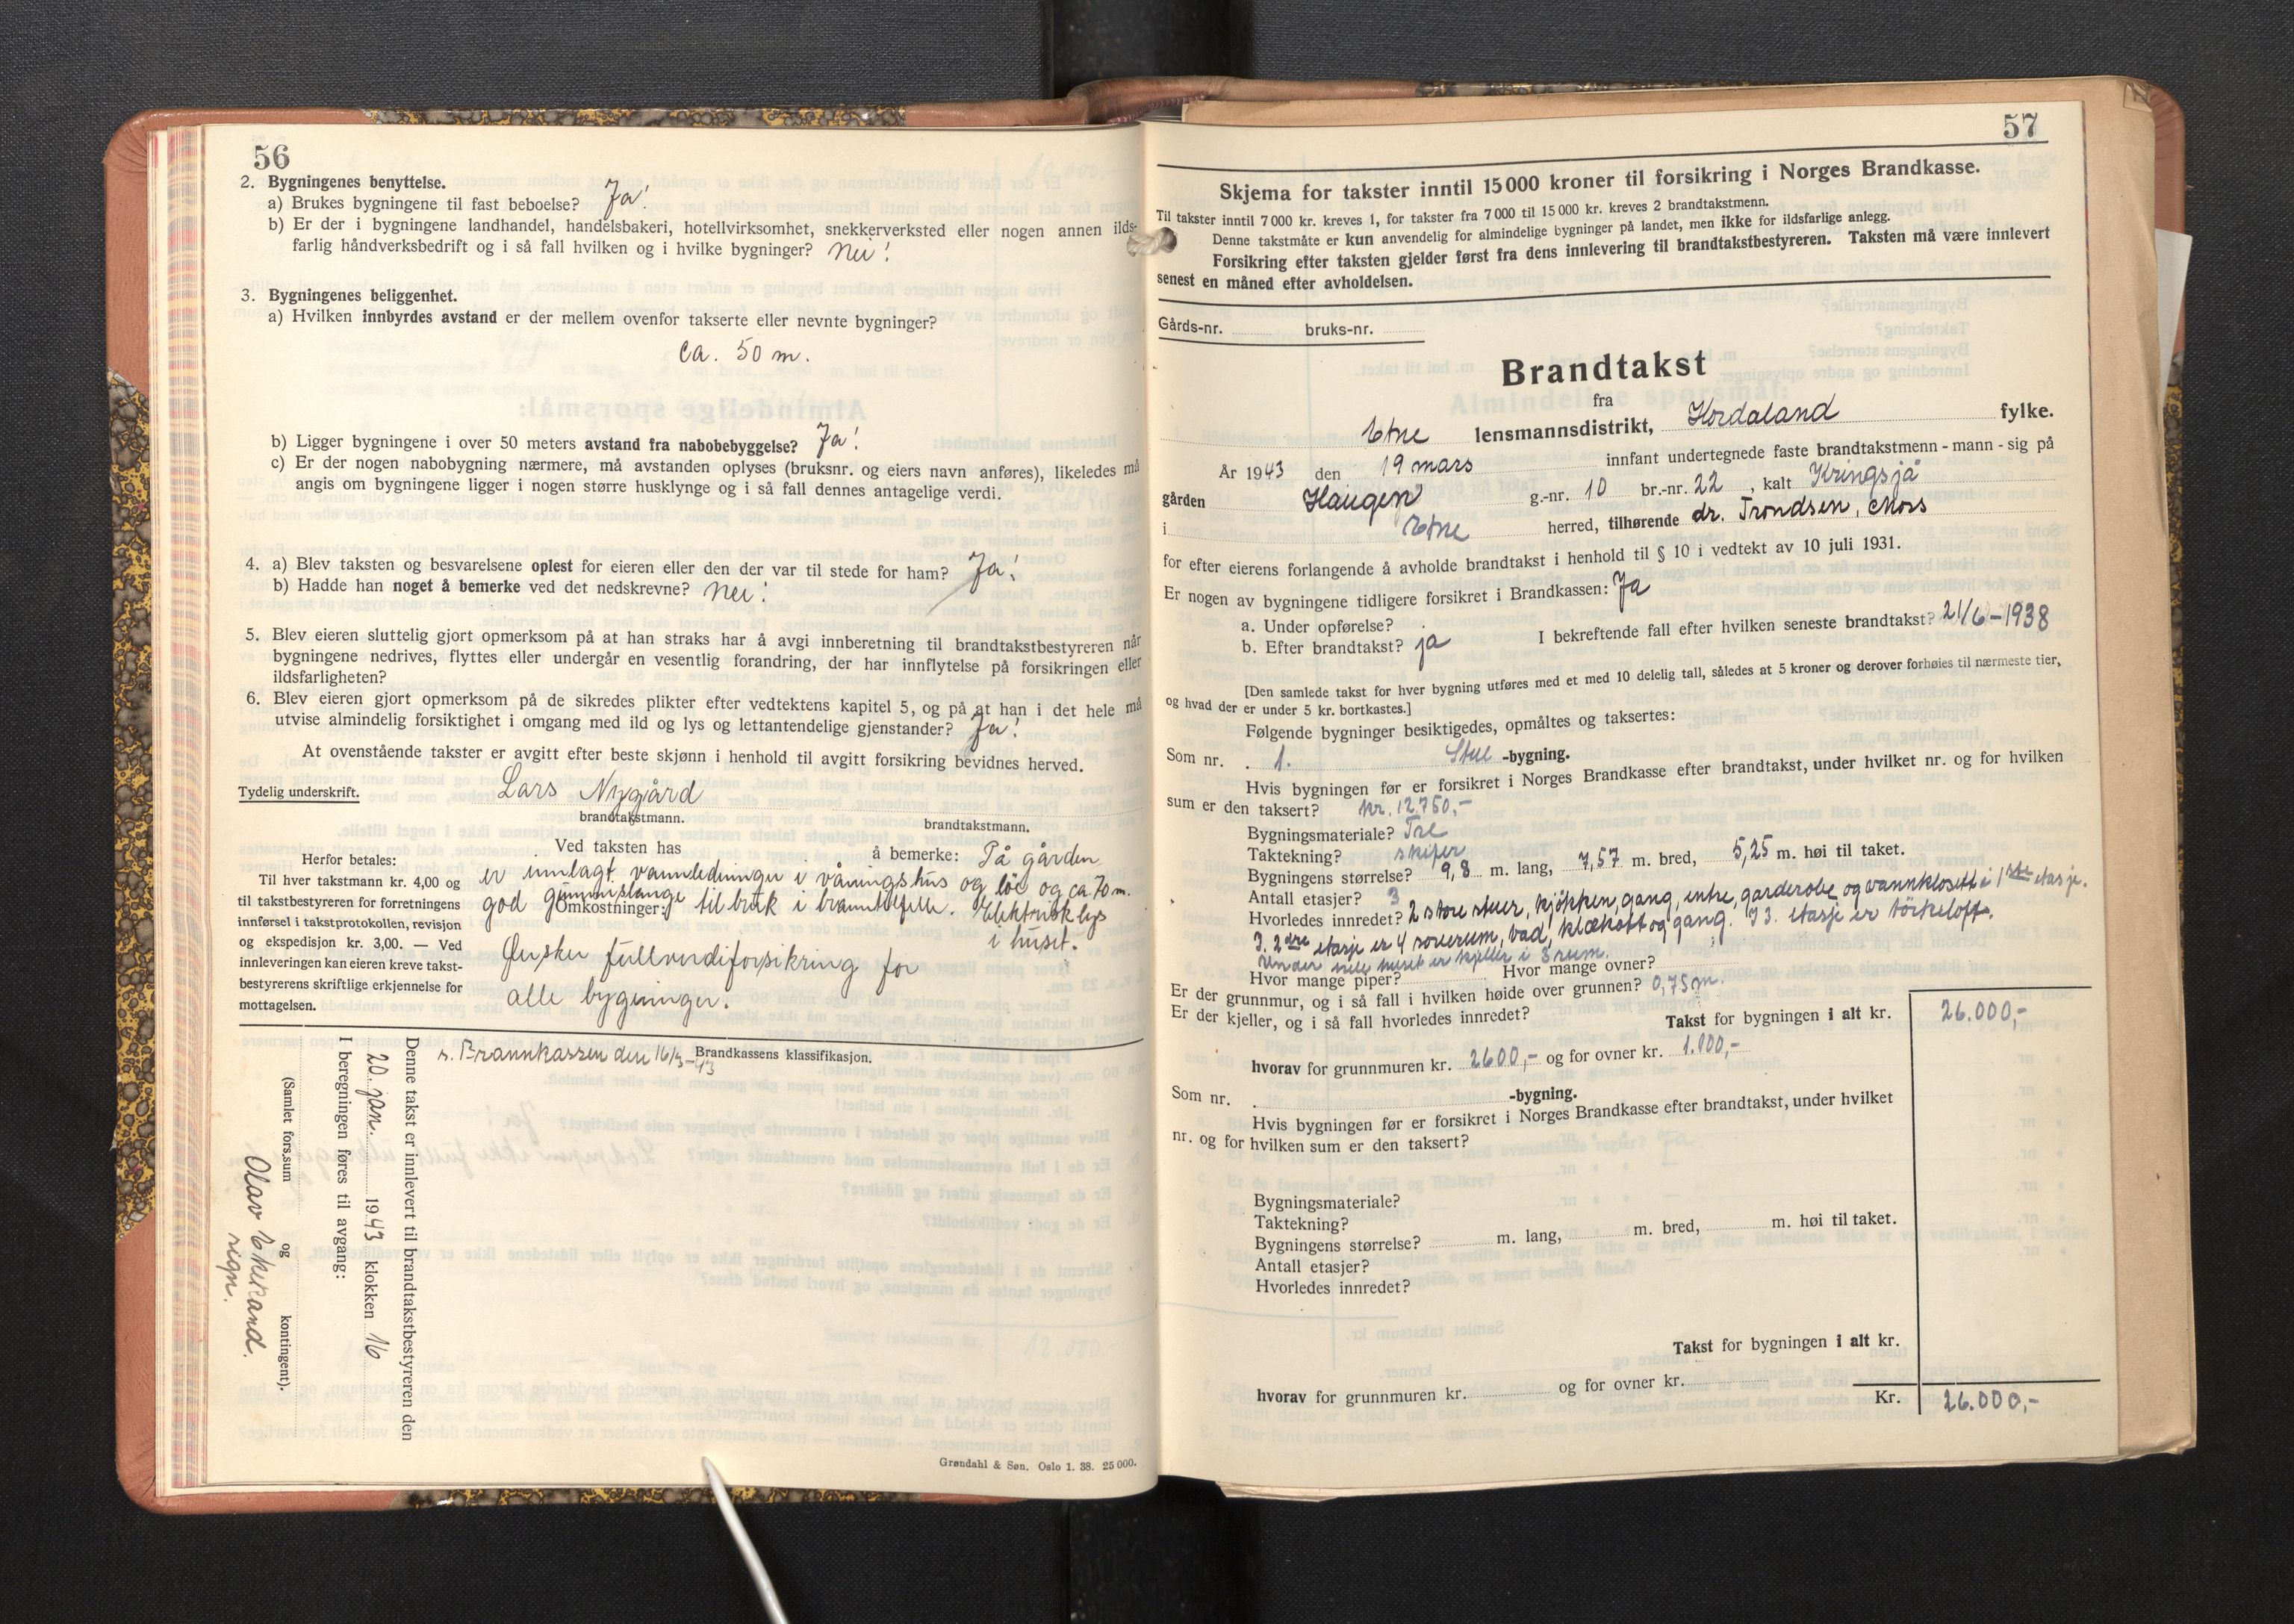 56
2. Bygningenes benyttelse.
a) Brukes bygningene til fast beboelse? Ja!
b) Er der i bygningene landhandel, handelsbakeri, hotellvirksomhet, snekkerverksted eller nogen annen ilds-
farlig håndverksbedrift og i så fall hvilken og i hvilke bygninger? Nei!
3. Bygningenes beliggenhet.
a) Hvilken innbyrdes avstand er der mellem ovenfor takserte eller nevnte bygninger?
ca. 50 m.
b) Ligger bygningene i over 50 meters avstand fra nabobebyggelse? Ja!
c) Er der nogen nabobygning nærmere, må avstanden oplyses (bruksnr. og eiers navn anføres), likeledes må
angis om bygningene ligger i nogen større husklynge og i så fall dennes antagelige verdi.
4. a) Blev taksten og besvarelsene oplest for eieren eller den der var til stede for ham? Ja!
b) Hadde han noget å bemerke ved det nedskrevne? Nei!
5. Blev eieren sluttelig gjort opmerksom på at han straks har å avgi innberetning til brandtakstbestyreren når
bygningene nedrives, flyttes eller undergår en vesentlig forandring, der har innflytelse på forsikringen eller
ildsfarligheten?
6. Blev eieren gjort opmerksom på de sikredes plikter efter vedtektens kapitel 5, og på at han i det hele må
utvise almindelig forsiktighet i omgang med ild og lys og lettantendelige gjenstander? Ja!
At ovenstående takster er avgitt efter beste skjønn i henhold til avgitt forsikring bevidnes herved.
Tydelig underskrift. Lars Nygård
brandtakstmann. brandtakstmann.
Herfor betales:
Til hver takstmann kr. 4,00 og
til takstbestyreren for forretningens
innførsel i takstprotokollen, revisjon
og ekspedisjon kr. 3,00. — Ved
innleveringen kan eieren kreve takst-
bestyrerens skriftlige erkjennelse for
mottagelsen.
Ved taksten has å bemerke: På gården
er innlagt vannledninger i våningshus og löe og ca 70 m.
god gummislange til bruk i branntilfelle. Elektrisk lys
Omkostninger:
i huset.
Ønsker fullverdiforsikring for
alle bygninger.
s. Brannkassen den 16/3-43 Brandkassens klassifikasjon.
Denne takst er innlevert til brandtakstbestyreren den
20. jan. 1943 klokken 16
I beregningen føres til avgang:
(Samlet fors.sum og kontingent).
Olav
sign.
Grøndahl & Søn, Oslo 1. 38. 25 000.
57
Skjema for takster inntil 15 000 kroner til forsikring i Norges Brandkasse.
Til takster inntil 7 000 kr. kreves 1, for takster fra 7 000 til 15 000 kr. kreves 2 brandtakstmenn.
Denne takstmåte er kun anvendelig for almindelige bygninger på landet, men ikke for ildsfarlige anlegg.
Forsikring efter taksten gjelder først fra dens innlevering til brandtakstbestyreren. Taksten må være innlevert
senest en måned efter avholdelsen.
Gårds-nr. bruks-nr.
Brandtakst
fra
Etne lensmannsdistrikt, Hordaland fylke.
År 1943 den 19 mars innfant undertegnede faste brandtakstmenn - mann - sig på
gården Haugen g.-nr. 10 br.-nr. 22, kalt Kringsjå
i Etne herred, tilhørende dr. Trondsen, Mors
for efter eierens forlangende å avholde brandtakst i henhold til § 10 i vedtekt av 10 juli 1931.
Er nogen av bygningene tidligere forsikret i Brandkassen: Ja
a. Under opførelse?
b. Efter brandtakst? ja I bekreftende fall efter hvilken seneste brandtakst? 21/6-1938
[Den samlede takst for hver bygning utføres med et med 10 delelig tall, således at 5 kroner og derover forhøies til nærmeste tier,
og hvad der er under 5 kr. bortkastes.]
Følgende bygninger besiktigedes, opmåltes og taksertes:
Som nr. 1. Stue -bygning.
Hvis bygningen før er forsikret i Norges Brandkasse efter brandtakst, under hvilket nr. og for hvilken
sum er den taksert? kr. 12.750,-
Bygningsmateriale? Tre
Taktekning? skifer
Bygningens størrelse? 9,8 m. lang, 7,57 m. bred, 5,25 m. høi til taket.
Antall etasjer? 3
Hvorledes innredet? 2 store stuer, kjökken, gang, entre, garderobe og vannklosett i 1ste etasje.
I 2dre etasje er 4 soverum, bad, klækott og gang. I 3. etasje er törkeloft.
Under hele huset er kjeller i 3 rum.
Hvor mange piper? Hvor mange ovner?
Er der grunnmur, og i så fall i hvilken høide over grunnen? 0,75 m.
Er der kjeller, og i så fall hvorledes innredet? Takst for bygningen i alt kr. 26.000,-
hvorav for grunnmuren kr. 2600,- og for ovner kr. 1.000,-
Som nr. -bygning.
Hvis bygningen før er forsikret i Norges Brandkasse efter brandtakst, under hvilket
nr. og for hvilken sum er den taksert?
Bygningsmateriale?
Taktekning?
Bygningens størrelse? m. lang, m. bred, m. høi til taket.
Antall etasjer?
Hvorledes innredet?
Takst for bygningen i alt kr.
hvorav for grunnmuren kr. og for ovner kr.
Kr. 26.000,-